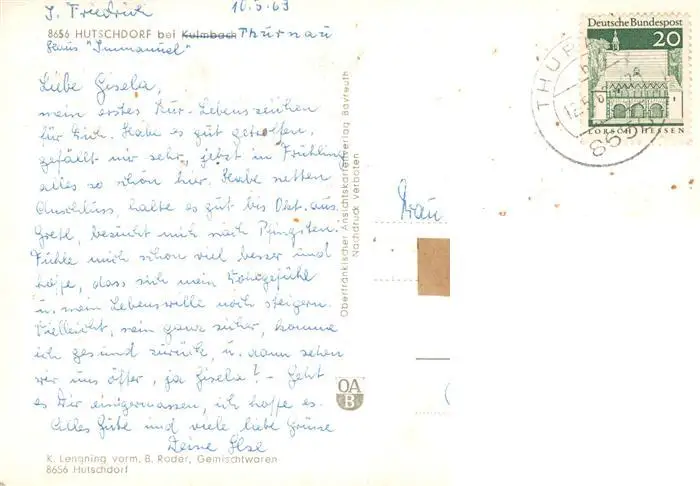 I. Friedrich 10.5.69
8656 HUTSCHDORF bei Kulmbach Thurnau
Haus "Immanuel"
Liebe Gisela,
mein erstes Kur-Lebenszeichen
für Dich. Habe es gut getroffen,
gefällt mir sehr, jetzt im Frühling
alles so schön hier. Habe netten
Anschluss, halte es gut bis Okt. aus.
Grete, besucht mich nach Pfingsten.
Fühle mich schon viel besser und
hoffe, dass sich mein Wohlgefühl
u. mein Lebenswille noch steigern.
Vielleicht, nein ganz sicher, komme
ich gesund zurück, u. dann sehen
wir uns öfter, ja Gisela? - Geht
es Dir einigermassen, ich hoffe es.
Alles Gute und viele liebe Grüsse
Deine Ilse
K. Lengning vorm. B. Roder, Gemischtwaren
8656 Hutschdorf
Oberfränkischer Ansichtskartenverlag Bayreuth
Nachdruck verboten
OA
B
Frau
Deutsche Bundespost
20
LORSCH/HESSEN
THUR
8656